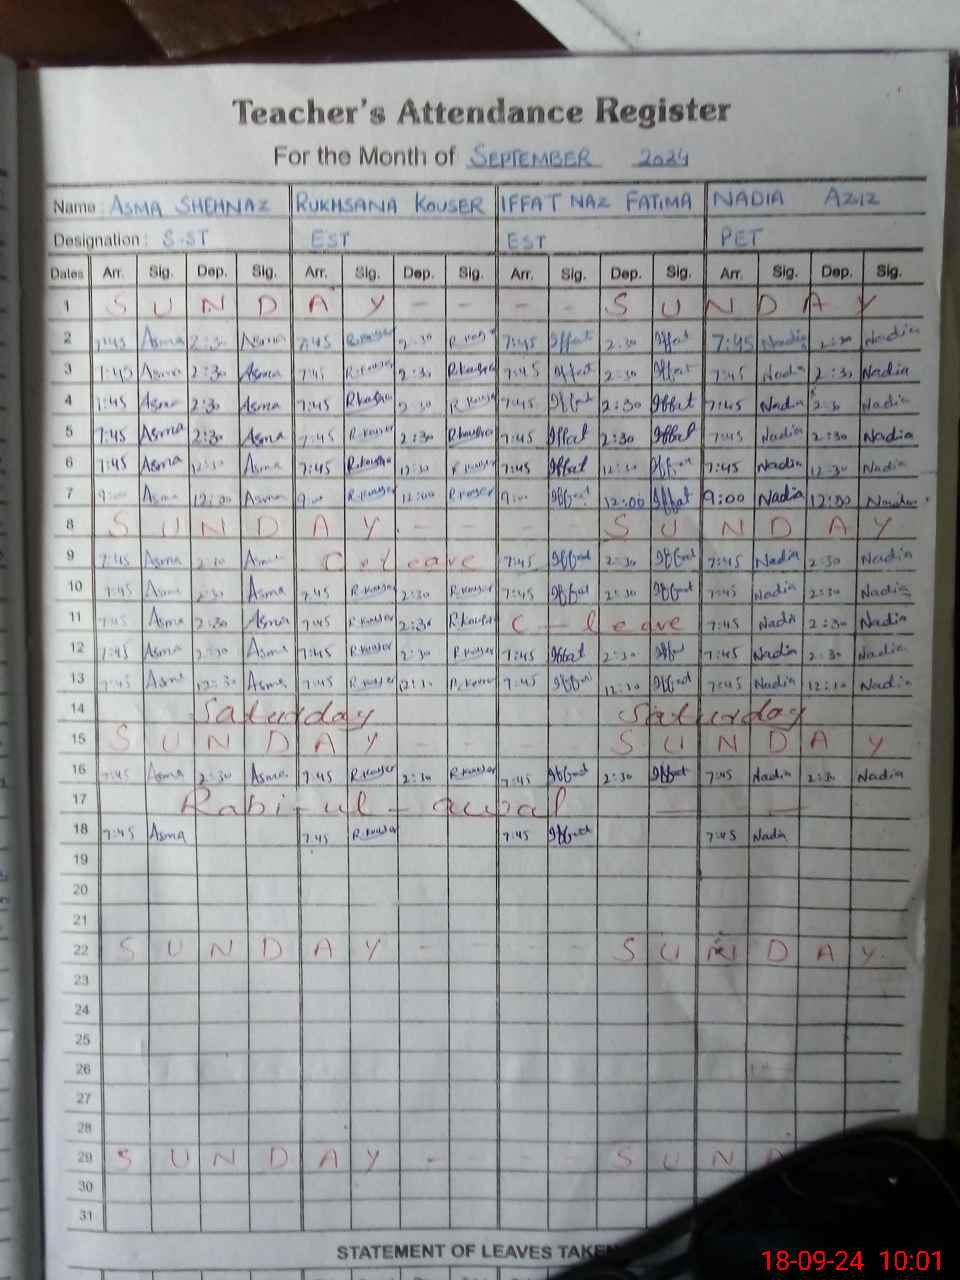 Teacher's Attendance Register
For the Month of SEPTEMBER 2024
Name: ASMA SHEHNAZ RUKHSANA KOUSER IFFAT NAZ FATIMA NADIA AZIZ
Designation: S-ST EST EST PET
Dates Arr. Sig. Dep. Sig. Arr. Sig. Dep. Sig. Arr. Sig. Dep. Sig. Arr. Sig. Dep. Sig.
1 S U N D A Y - - - - S U N D A Y
2 7:45 Asma 2:30 Asma 7:45 R.Kouser 2:30 R.Kouser 7:45 Iffat 2:30 Iffat 7:45 Nadia 2:30 Nadia
3 7:45 Asma 2:30 Asma 7:45 R.Kouser 2:30 R.Kouser 7:45 Iffat 2:30 Iffat 7:45 Nadia 2:30 Nadia
4 7:45 Asma 2:30 Asma 7:45 R.Kouser 2:30 R.Kouser 7:45 Iffat 2:30 Iffat 7:45 Nadia 2:30 Nadia
5 7:45 Asma 2:30 Asma 7:45 R.Kouser 2:30 R.Kouser 7:45 Iffat 2:30 Iffat 7:45 Nadia 2:30 Nadia
6 7:45 Asma 12:30 Asma 7:45 R.Kouser 12:30 R.Kouser 7:45 Iffat 12:30 Iffat 7:45 Nadia 12:30 Nadia
7 9:00 Asma 12:00 Asma 9:00 R.Kouser 12:00 R.Kouser 9:00 Iffat 12:00 Iffat 9:00 Nadia 12:00 Nadia
8 S U N D A Y - - - - S U N D A Y
9 7:45 Asma 2:30 Asma C-leave 7:45 Iffat 2:30 Iffat 7:45 Nadia 2:30 Nadia
10 7:45 Asma 2:30 Asma 7:45 R.Kouser 2:30 R.Kouser 7:45 Iffat 2:30 Iffat 7:45 Nadia 2:30 Nadia
11 7:45 Asma 2:30 Asma 7:45 R.Kouser 2:30 R.Kouser C - leave 7:45 Nadia 2:30 Nadia
12 7:45 Asma 2:30 Asma 7:45 R.Kouser 2:30 R.Kouser 7:45 Iffat 2:30 Iffat 7:45 Nadia 2:30 Nadia
13 7:45 Asma 12:30 Asma 7:45 R.Kouser 12:30 R.Kouser 7:45 Iffat 12:30 Iffat 7:45 Nadia 12:30 Nadia
14 Saturday Saturday
15 S U N D A Y - - - - S U N D A Y
16 7:45 Asma 2:30 Asma 7:45 R.Kouser 2:30 R.Kouser 7:45 Iffat 2:30 Iffat 7:45 Nadia 2:30 Nadia
17 Rabi-ul-awal
18 7:45 Asma 7:45 R.Kouser 7:45 Iffat 7:45 Nadia
19
20
21
22 S U N D A Y - - - - S U N D A Y
23
24
25
26
27
28
29 S U N D A Y - - - - S U N D
30
31
STATEMENT OF LEAVES TAKEN
18-09-24 10:01